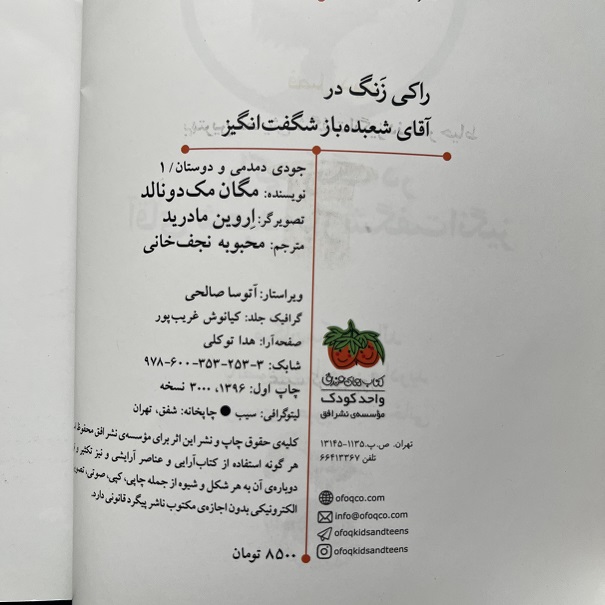 راکی زَنگ در
آقای شعبده‌باز شگفت‌انگیز
جودی دمدمی و دوستان/ ۱
نویسنده: مگان مک‌دونالد
تصویرگر: اِروین مادرید
مترجم: محبوبه نجف‌خانی
ویراستار: آتوسا صالحی
گرافیک جلد: کیانوش غریب‌پور
صفحه‌آرا: هدا توکلی
شابک: ۳-۲۵۳-۳۵۳-۶۰۰-۹۷۸
چاپ اول: ۱۳۹۶، ۳۰۰۰ نسخه
لیتوگرافی: سیب ● چاپخانه: شفق، تهران
کلیه‌ی حقوق چاپ و نشر این اثر برای مؤسسه‌ی نشر افق محفوظ
هر گونه استفاده از کتاب‌آرایی و عناصر آرایشی و نیز تکثیر و
دوباره‌ی آن به هر شکل و شیوه از جمله چاپی، کپی، صوتی،
الکترونیکی بدون اجازه‌ی مکتوب ناشر پیگرد قانونی دارد.
۸۵۰۰ تومان
واحد کودک
مؤسسه‌ی نشر افق
تهران، ص.پ. ۱۱۳۵-۱۳۱۴۵
تلفن ۶۶۴۱۳۳۶۷
ofoqco.com
info@ofoqco.com
ofoqkidsandteens
ofoqkidsandteens